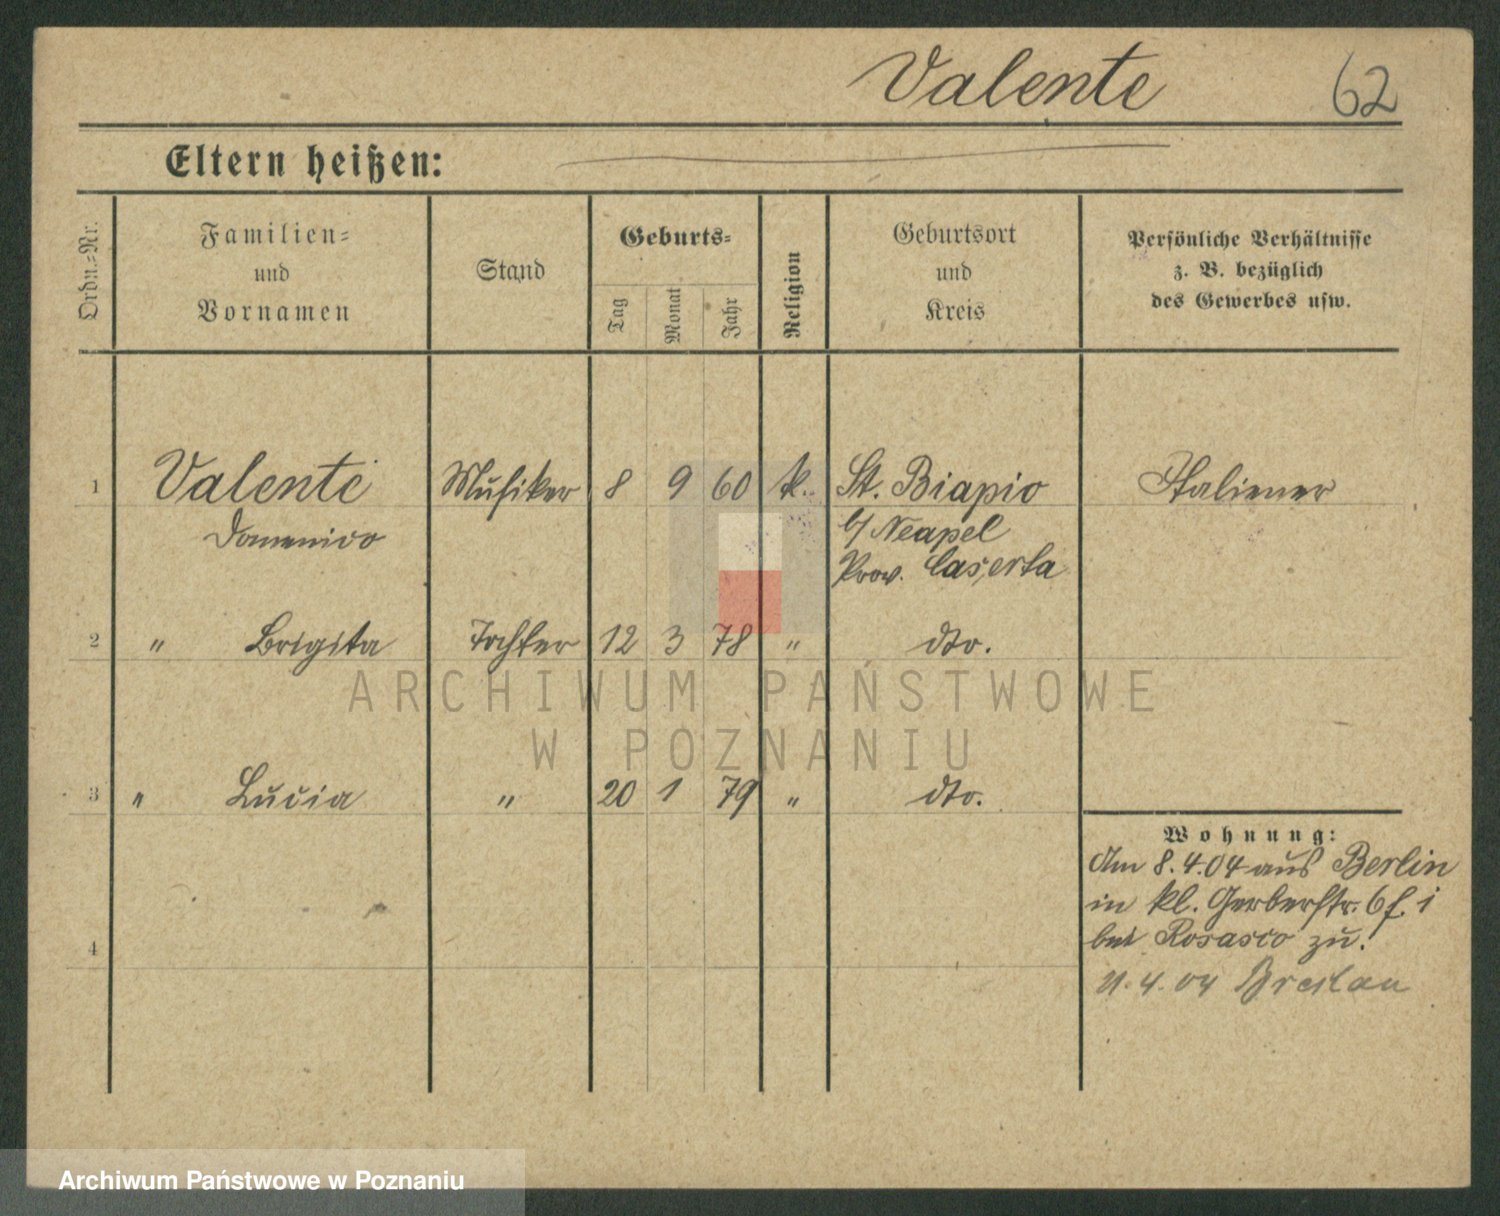 Valente 62
Eltern heißen:
Ordn.-Nr.
Familien-
und
Vornamen
Stand
Geburts-
Tag
Monat
Jahr
Religion
Geburtsort
und
Kreis
Persönliche Verhältnisse
z. B. bezüglich
des Gewerbes usw.
1 Valente Musiker 8 9 60 k. St. Biapio Italiener
Domenico b/ Neapel
Prov. Caserta
2 " Brigita Tochter 12 3 78 " dto.
ARCHIWUM PAŃSTWOWE
W POZNANIU
3 " Lucia " 20 1 79 " dto.
Wohnung:
Am 8.4.04 aus Berlin
in kl. Gerberstr. 6 f. i
bei Rosasco zu.
4
11.4.04 Breslau
Archiwum Państwowe w Poznaniu